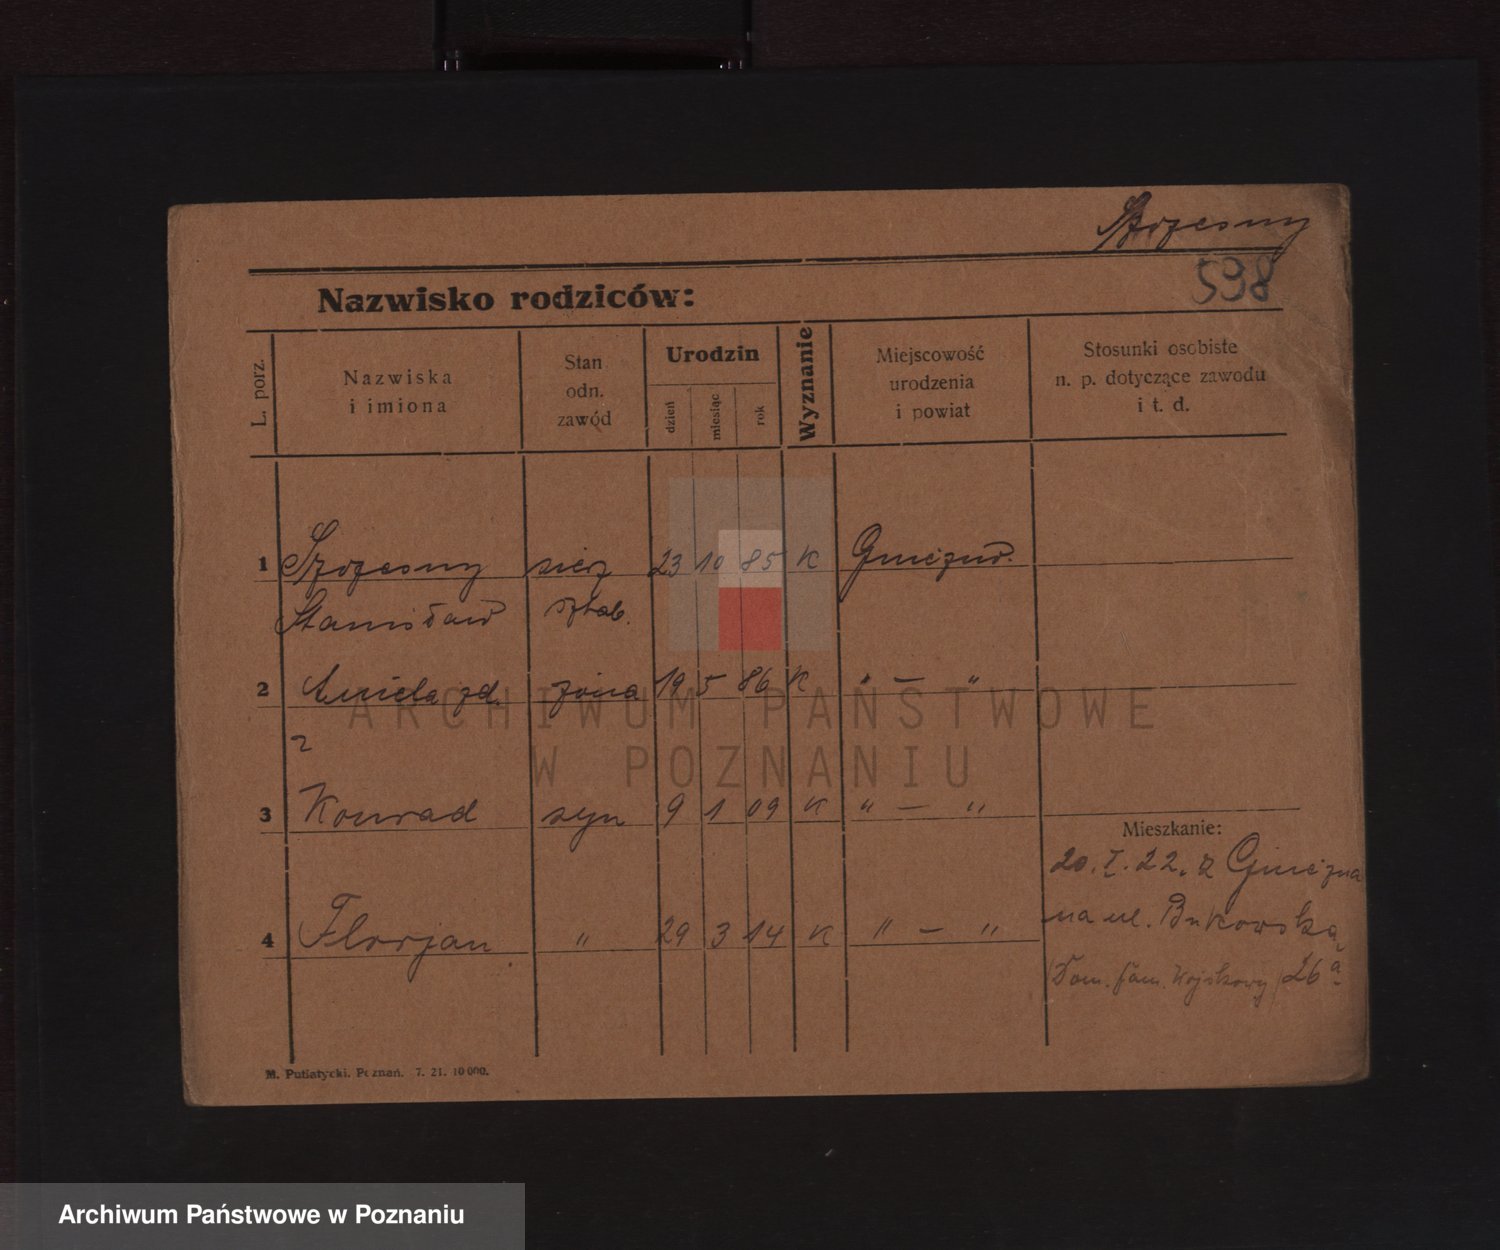 Szczesny
598
Nazwisko rodziców:
L. porz.
Nazwiska
i imiona
Stan
odn.
zawód
Urodzin
dzień
miesiąc
rok
Wyznanie
Miejscowość
urodzenia
i powiat
Stosunki osobiste
n. p. dotyczące zawodu
i t. d.
1 Szczesny sierż 23 10 85 K Gniezno.
Stanisław sztab.
2 Aniela zd. żona 19 5 86 K " — "
?
3 Konrad syn 9 1 09 K " — "
Mieszkanie:
20. I. 22. z Gniezna
na ul. Bukowską
4 Florjan " 29 3 14 K " — "
Dom. fam. Wojskowy 26a
M. Putiatycki. Poznań. 7. 21. 10 000.
ARCHIWUM PAŃSTWOWE
W POZNANIU
Archiwum Państwowe w Poznaniu